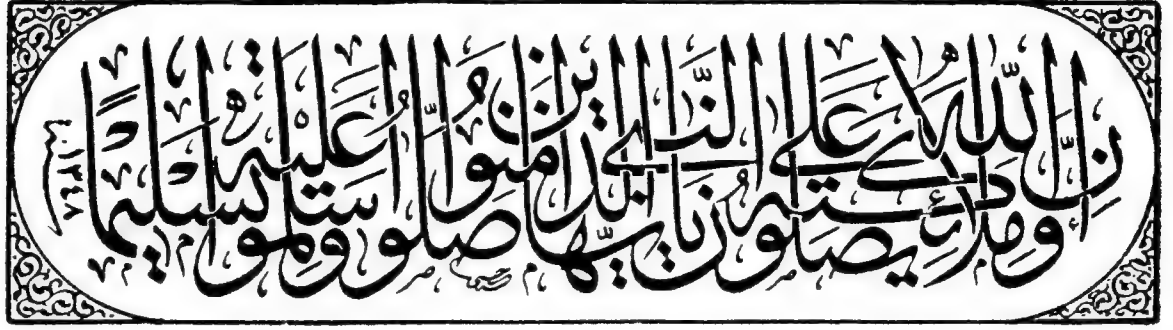 إن الله وملائكته يصلون على النبي يا أيها الذين آمنوا صلوا عليه وسلموا تسليما
١٣٤٨